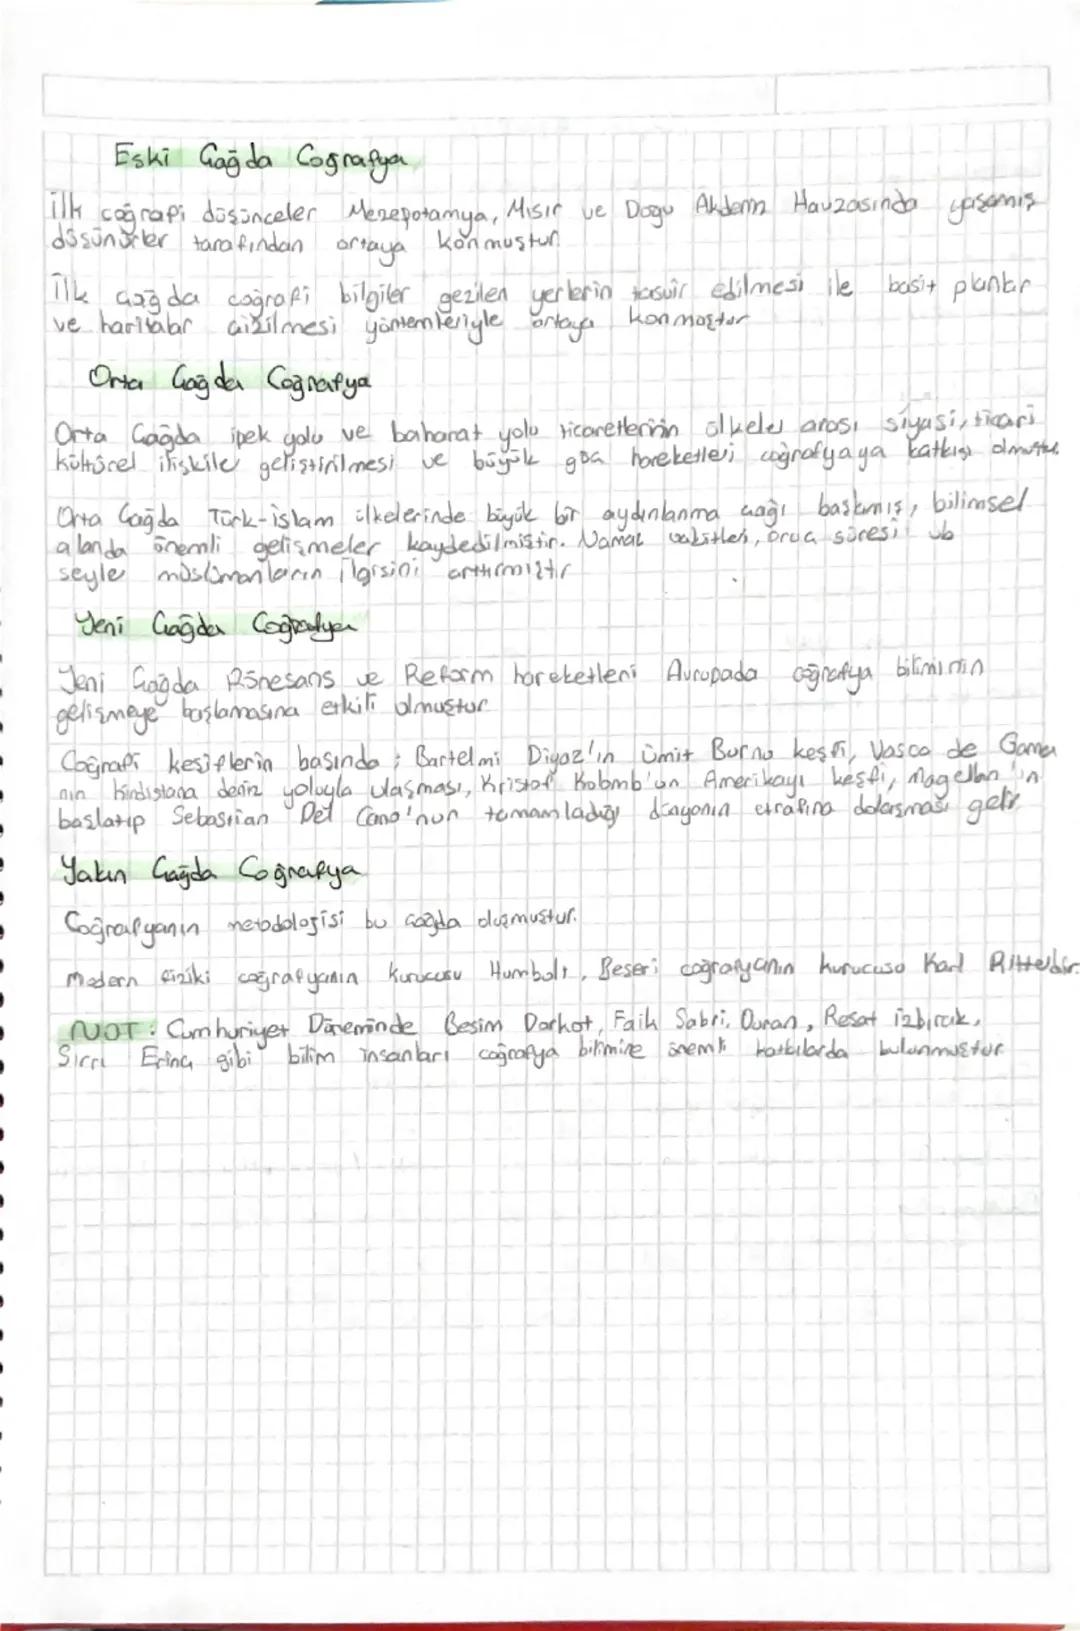 Eski Çağda Coğrafya
İlk coğrafi düşünceler Mezepotamya, Mısır ve Dogu Akdenz Havzasında yaşamış
düşünürler tarafından ortaya konmuştur
İlk çağda coğrafi bilgiler gezilen yerlerin tasvir edilmesi ile basit planlar
ve haritalar çizilmesi yöntemleriyle ortaya konmoştur
Orta Çağda Coğrafya
Orta Çağda ipek yolu ve baharat yolu ticaretlerinin ülkeler arası siyasi, ticari
kültürel ilişkiler geliştirilmesi ve büyük göç hareketleri coğrafyaya katkısı olmuştur
Orta Çağda Türk-islam ülkelerinde büyük bir aydınlanma çağı başlamış, bilimsel
alanda önemli gelişmeler kaydedilmiştir. Namaz vakitleri, oruç süresi vb
şeyler müslümanların ilgisini arttırmıştır
Yeni Çağda Coğrafya
Yeni Çağda Rönesans ve Reform hareketleri Avrupada coğrafya biliminin
gelişmeye başlamasına etkili olmuştur
Coğrafi keşiflerin başında ; Bartelmi Diyaz'ın Ümit Burnu keşfi, Vasco de Gama
nın hindistana deniz yoluyla ulaşması, Kristof Kolomb'un Amerikayı keşfi, Magellan'ın
başlatıp Sebastian Del Cano'nun tamamladığı dünyanın etrafına dolaşması gelir
Yakın Çağda Coğrafya
Coğrafyanın metodolojisi bu çağda oluşmuştur.
Modern fiziki coğrafyanın kurucusu Humbolt, Beşeri coğrafyanın kurucusu Karl Ritterdir.
NOT: Cumhuriyet Döneminde Besim Darkot, Faik Sabri, Duran, Reşat izbırak,
Sırrı Erinç gibi bilim insanları coğrafya bilimine önemli katkılarda bulunmuştur